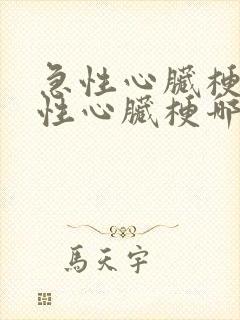 急性心臟梗
性心臟梗哪
馬天宇